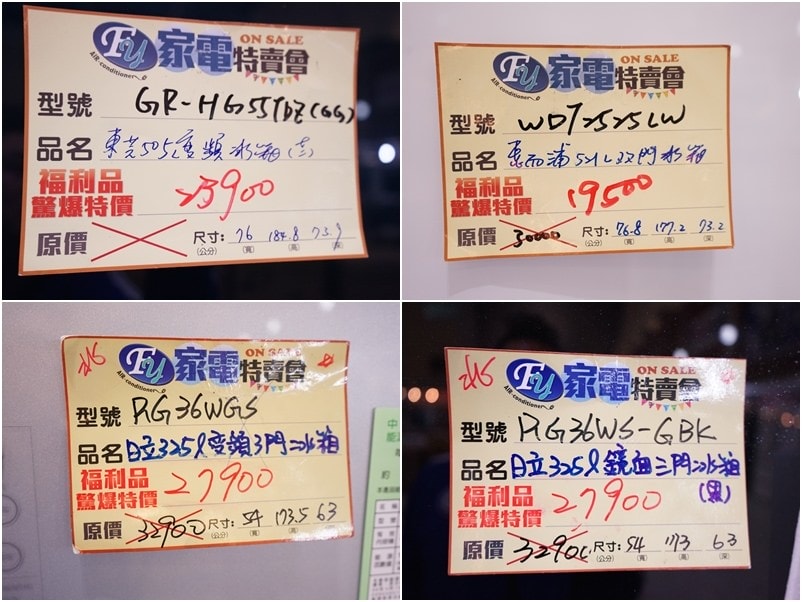 FY 家電特賣會 ON SALE
AIR-conditioner
型號 GR-HG55TDZ(GG)
品名 東芝505變頻冰箱(士)
福利品
驚爆特價 23900
原價 尺寸: 76 184.8 73.9
(公分) (寬) (高) (深)
FY 家電特賣會 ON SALE
AIR-conditioner
型號 WDT2525LW
品名 惠而浦521L雙門冰箱
福利品
驚爆特價 19500
原價 30000 尺寸: 76.8 177.2 73.2
(公分) (寬) (高) (深)
FY 家電特賣會 ON SALE
AIR-conditioner
型號 RG36WGS
品名 日立325l變頻3門冰箱
福利品
驚爆特價 27900
原價 32900 尺寸: 54 173.5 63
(公分) (寬) (高) (深)
FY 家電特賣會 ON SALE
AIR-conditioner
型號 RG36WS-GBK
品名 日立325l鏡面三門冰箱
(黑)
福利品
驚爆特價 27900
原價 32900 尺寸: 54 173 63
(公分) (寬) (高) (深)